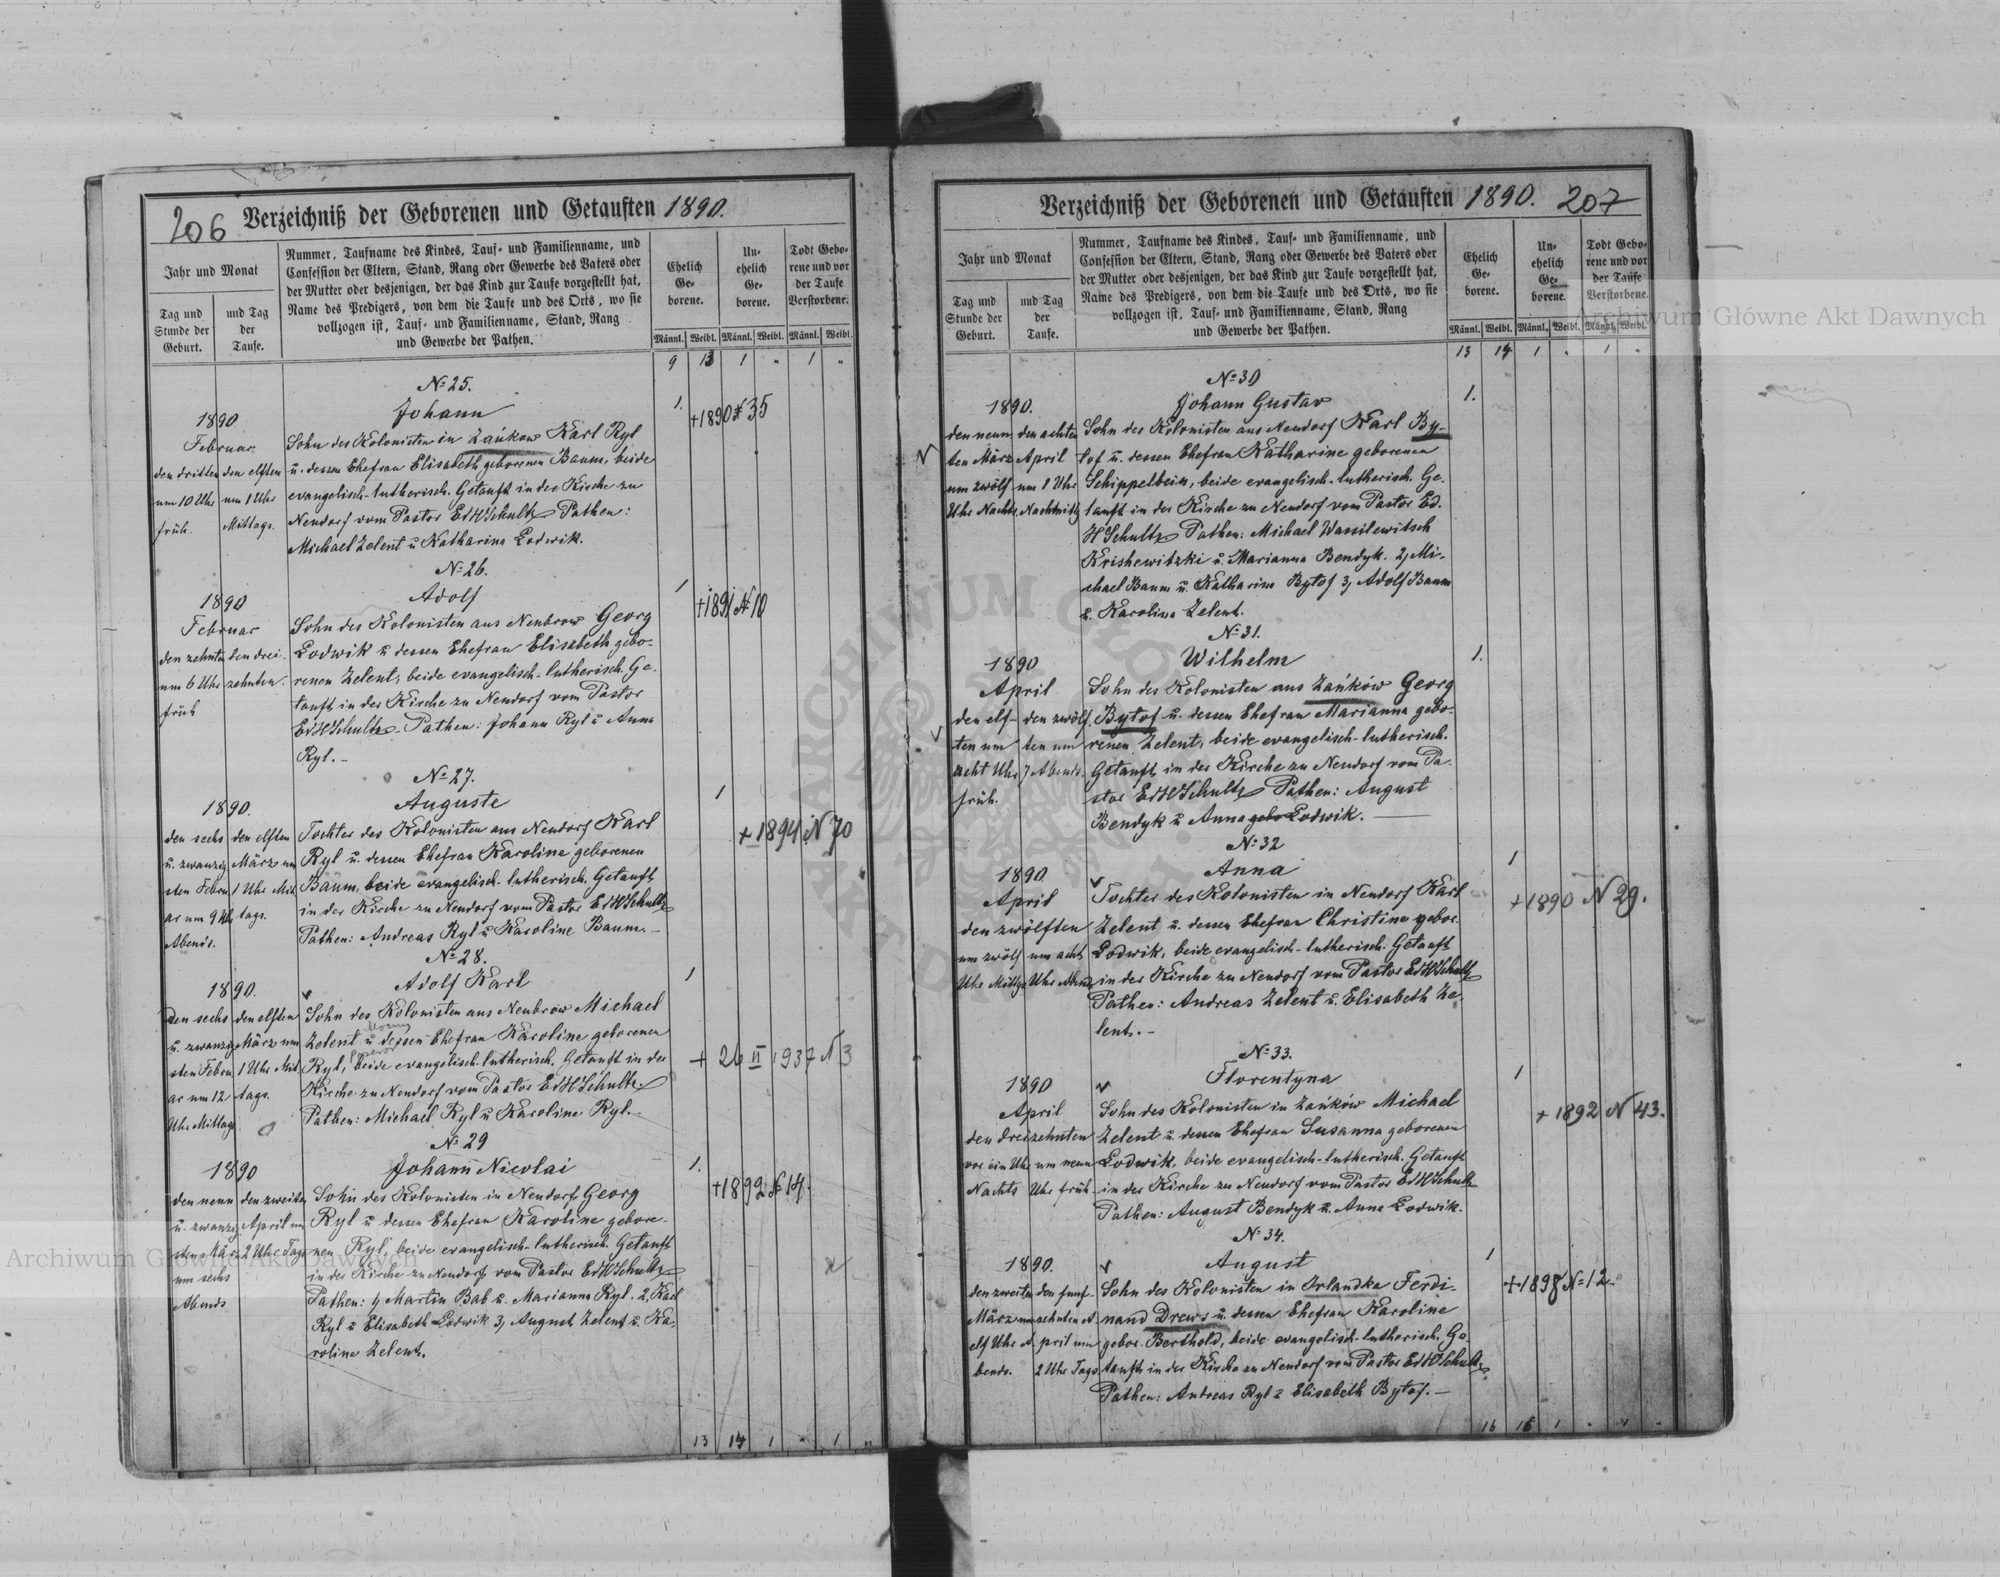 206 Verzeichniß der Geborenen und Getauften 1890.
Jahr und Monat
Tag und Stunde der Geburt.
und Tag der Taufe.
Nummer, Taufname des Kindes, Tauf- und Familienname, und
Confession der Eltern, Stand, Rang oder Gewerbe des Vaters oder
der Mutter oder desjenigen, der das Kind zur Taufe vorgestellt hat,
Name des Predigers, von dem die Taufe und des Orts, wo sie
vollzogen ist, Tauf- und Familienname, Stand, Rang
und Gewerbe der Pathen.
Ehelich Geborene.
Unehelich Geborene.
Todt Geborene und vor der Taufe Verstorbene.
Männl. Weibl. Männl. Weibl. Männl. Weibl.
9 13 1 " 1 "
No 25.
1890 Johann 1. +1890 # 35
Februar Sohn des Kolonisten in Zańkow Karl Ryl
den dritten den elften u. dessen Ehefrau Elisabeth geborenen Baum, beide
um 10 Uhr um 1 Uhr evangelisch-lutherisch. Getauft in der Kirche zu
früh. Mittags. Neudorf vom Pastor EdHSchultz Pathen:
Michael Zelent u Katharina Lodwik.
No 26.
1890 Adolf 1 +1891 N 10
Februar Sohn des Kolonisten aus Neubrow Georg
den zehnten den drei- Lodwik u dessen Ehefrau Elisabeth gebo-
um 6 Uhr zehnten. renen Zelent, beide evangelisch-lutherisch. Ge-
früh tauft in der Kirche zu Neudorf vom Pastor
EdHSchultz. Pathen: Johann Ryl u Anna
Ryl. –
No 27.
1890. Auguste 1
den sechs den elften Tochter des Kolonisten aus Neudorf Karl + 1894 N 70
u. zwanzig März um Ryl u. dessen Ehefrau Karoline geborenen
sten Febru 1 Uhr Mit Baum, beide evangelisch-lutherisch. Getauft
ar um 9 Uhr tags. in der Kirche zu Neudorf vom Pastor EdHSchultz
Abends. Pathen: Andreas Ryl u Karoline Baum. –
No 28.
1890. Adolf Karl 1
den sechs den elften Sohn des Kolonisten aus Neubrow Michael
u. zwanzig März um Zelent u dessen Ehefrau Karoline geborenen
sten Febru 1 Uhr Mit Ryl, beide evangelisch-lutherisch. Getauft in der + 26 II 1937 N 3
ar um 12 tags. Kirche zu Neudorf vom Pastor EdHSchultz.
Uhr Mittag Pathen: Michael Ryl u Karoline Ryl. –
No 29
1890 Johann Nicolai 1.
den neun den zweiten Sohn des Kolonisten in Neudorf Georg +1892 N 14.
u. zwanzig April um Ryl u dessen Ehefrau Karoline gebore-
sten März 2 Uhr Tags nen Ryl, beide evangelisch-lutherisch. Getauft
um sechs in der Kirche zu Neudorf vom Pastor EdHSchultz
Abends Pathen: 1, Martin Bab u. Marianna Ryl. 2, Karl
Ryl u Elisabeth Lodwik 3, August Zelent u. Ka-
roline Zelent.
13 14 1 " 1 "
Verzeichniß der Geborenen und Getauften 1890. 207
Jahr und Monat
Tag und Stunde der Geburt.
und Tag der Taufe.
Nummer, Taufname des Kindes, Tauf- und Familienname, und
Confession der Eltern, Stand, Rang oder Gewerbe des Vaters oder
der Mutter oder desjenigen, der das Kind zur Taufe vorgestellt hat,
Name des Predigers, von dem die Taufe und des Orts, wo sie
vollzogen ist, Tauf- und Familienname, Stand, Rang
und Gewerbe der Pathen.
Ehelich Geborene.
Unehelich Geborene.
Todt Geborene und vor der Taufe Verstorbene.
Männl. Weibl. Männl. Weibl. Männl. Weibl.
13 14 1 " 1 "
No 30
1890. Johann Gustav 1.
den neun den achten Sohn des Kolonisten aus Neudorf Karl By-
ten März April tof u. dessen Ehefrau Katharine geborenen
um zwölf um 1 Uhr Schippelbein, beide evangelisch-lutherisch. Ge-
Uhr Nachts. Nachmittg tauft in der Kirche zu Neudorf vom Pastor Ed.
HSchultz Pathen: Michael Wassilewitsch
Krishewitzki u. Marianna Bendyk. 2, Mi-
chael Baum u. Katharina Bytof 3, Adolf Baum
u. Karolina Zelent.
No 31.
1890 Wilhelm 1.
April Sohn des Kolonisten aus Zańków Georg
den elf- den zwölf Bytof u. dessen Ehefrau Marianna gebo-
ten um ten um renen Zelent, beide evangelisch-lutherisch.
acht Uhr 7 Abends. Getauft in der Kirche zu Neudorf vom Pa-
früh. stor EdHSchultz Pathen: August
Bendyk u Anna Lodwik. —
No 32
1890. Anna 1
April Tochter des Kolonisten in Neudorf Karl +1890 N 29.
den zwölften Zelent u. dessen Ehefrau Christine gebor.
um zwölf um acht Lodwik, beide evangelisch-lutherisch. Getauft
Uhr Mittgs Uhr Abends in der Kirche zu Neudorf vom Pastor EdHSchultz
Pathen: Andreas Zelent u. Elisabeth Ze-
lent. –
No 33.
1890 Florentyna 1
April Sohn des Kolonisten in Zańków Michael + 1892 N 43.
den dreizehnten Zelent u. dessen Ehefrau Susanna geborenen
vor ein Uhr um neun Lodwik, beide evangelisch-lutherisch. Getauft
Nachts Uhr früh in der Kirche zu Neudorf vom Pastor EdHSchultz
Pathen: August Bendyk u. Anna Lodwik.
No 34.
1890. August 1
den zweiten den fünf- Sohn des Kolonisten in Orlandka Ferdi- +1898 N=12
März um zehnten A- nand Drews u. dessen Ehefrau Karoline
elf Uhr A- pril um gebor. Berthold, beide evangelisch-lutherisch. Ge-
bends. 2 Uhr Tags tauft in der Kirche zu Neudorf vom Pastor EdHSchultz
Pathen: Andreas Ryl u Elisabeth Bytof. –
16 16 1 " 1 "
Archiwum Główne Akt Dawnych
Archiwum Główne Akt Dawnych